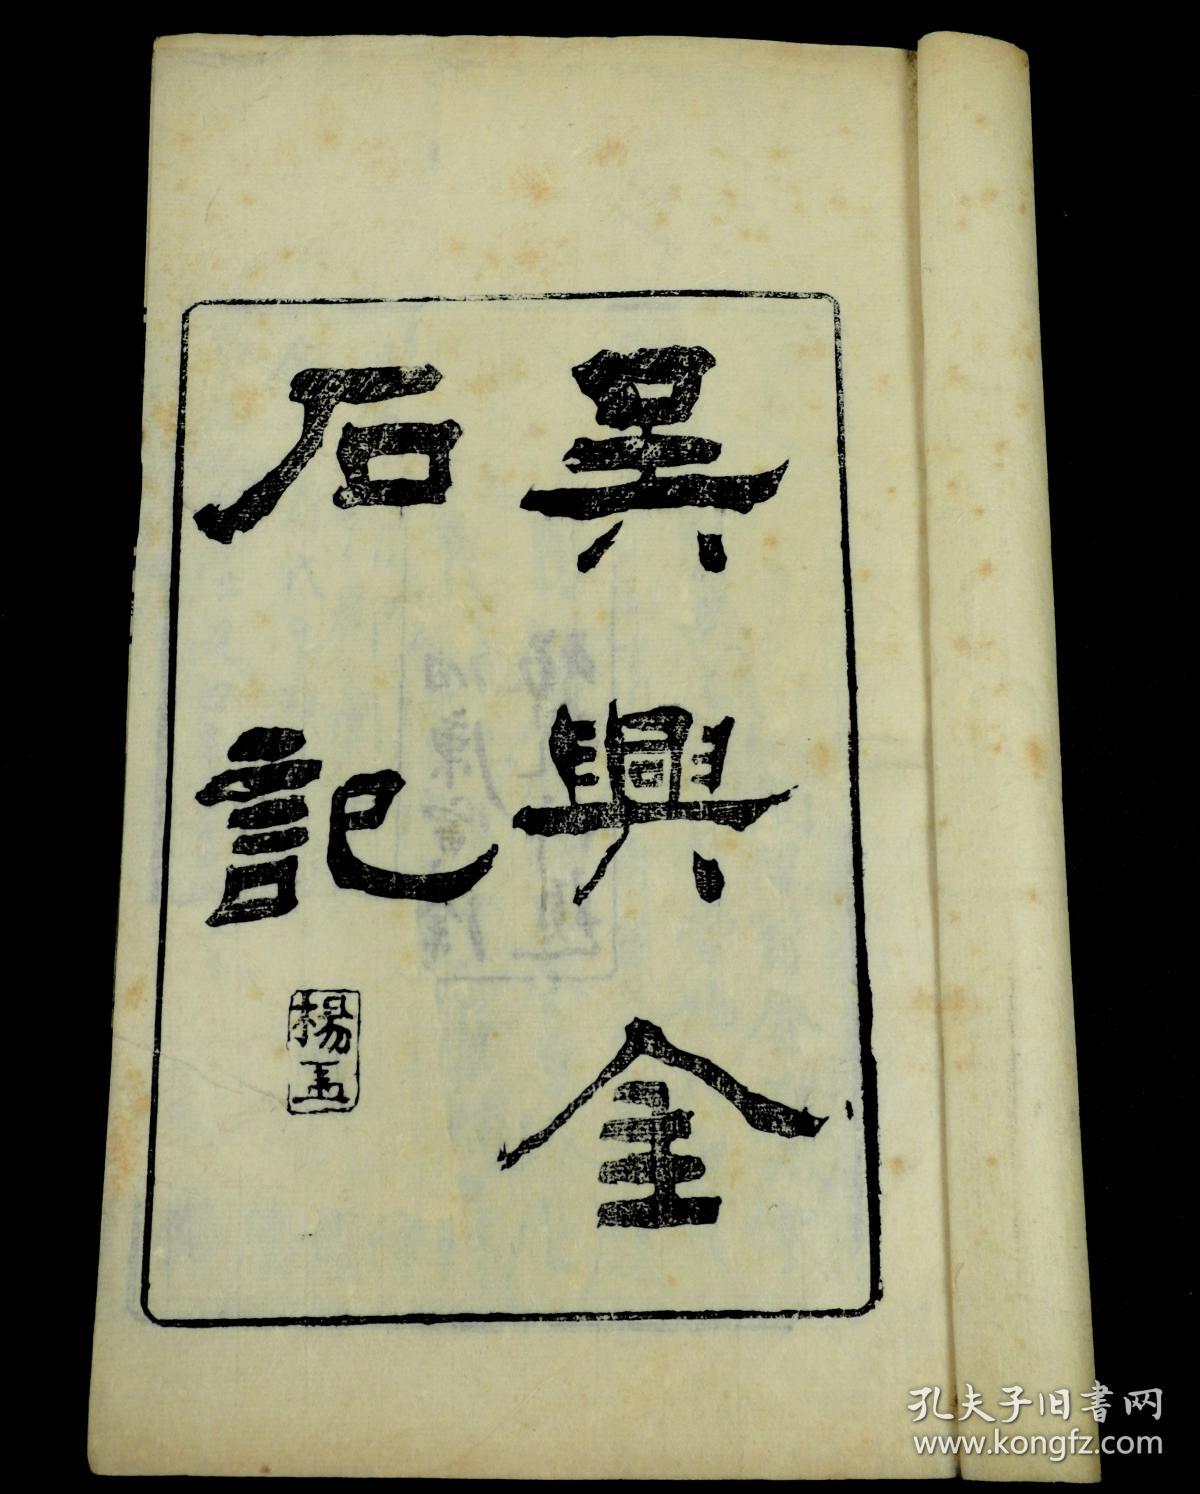 吳興金
石記
楊玉
孔夫子旧書网
www.kongfz.com